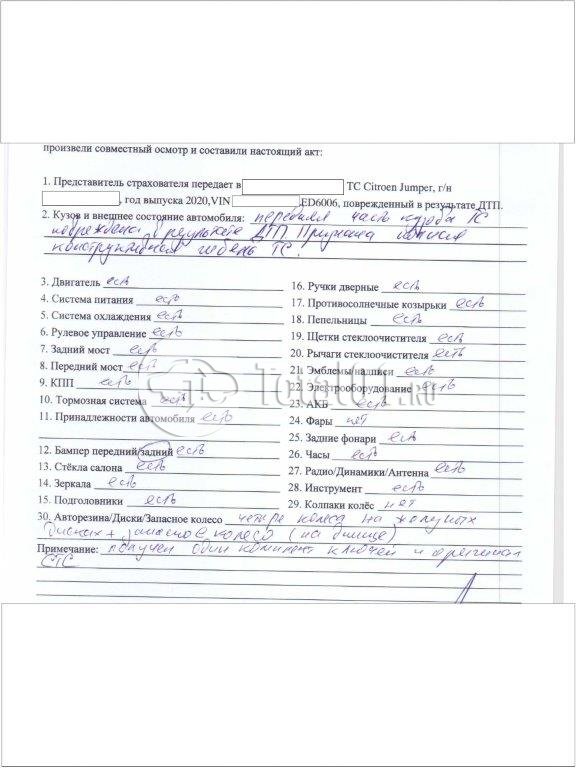 произвели совместный осмотр и составили настоящий акт:
1. Представитель страхователя передает в ТС Citroen Jumper, г/н
, год выпуска 2020,VIN ,ED6006, поврежденный в результате ДТП.
2. Кузов и внешнее состояние автомобиля: передняя часть кузова ТС
повреждена в результате ДТП. Признана полная
конструктивная гибель ТС.
3. Двигатель есть
4. Система питания есть
5. Система охлаждения есть
6. Рулевое управление есть
7. Задний мост есть
8. Передний мост есть
9. КПП есть
10. Тормозная система есть
11. Принадлежности автомобиля есть
12. Бампер передний/задний есть
13. Стёкла салона есть
14. Зеркала есть
15. Подголовники есть
16. Ручки дверные есть
17. Противосолнечные козырьки есть
18. Пепельницы есть
19. Щетки стеклоочистителя есть
20. Рычаги стеклоочистителя есть
21. Эмблемы надписи есть
22. Электрооборудование есть
23. АКБ есть
24. Фары нет
25. Задние фонари есть
26. Часы есть
27. Радио/Динамики/Антенна есть
28. Инструмент есть
29. Колпаки колёс нет
30. Авторезина/Диски/Запасное колесо четыре колеса на
дисках + запасное колесо (на днище)
Примечание: получен один комплект ключей и оригинал
СТС